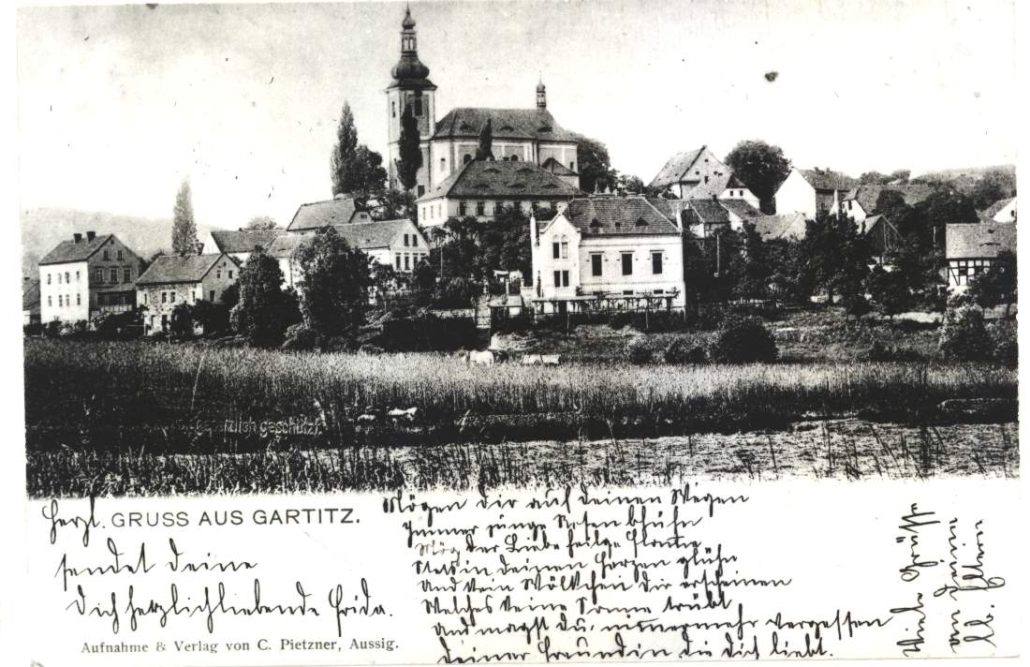 tzlich geschützt.
Herzl. GRUSS AUS GARTITZ.
sendet deine
Dich herzlichliebende Frida.
Aufnahme & Verlag von C. Pietzner, Aussig.
Mögen dir auf deinen Wegen
Immer junge Rosen blühn
Mög der Liebe heilge Flamme
Stets in deinen Herzen glühn
Und kein Wölkchen dir erscheinen
Welches deine Sonne trübt
Und magst du, nimmermehr vergessen
deiner Freundin die dich liebt.
Viele Grüße
an deine
lb. Eltern